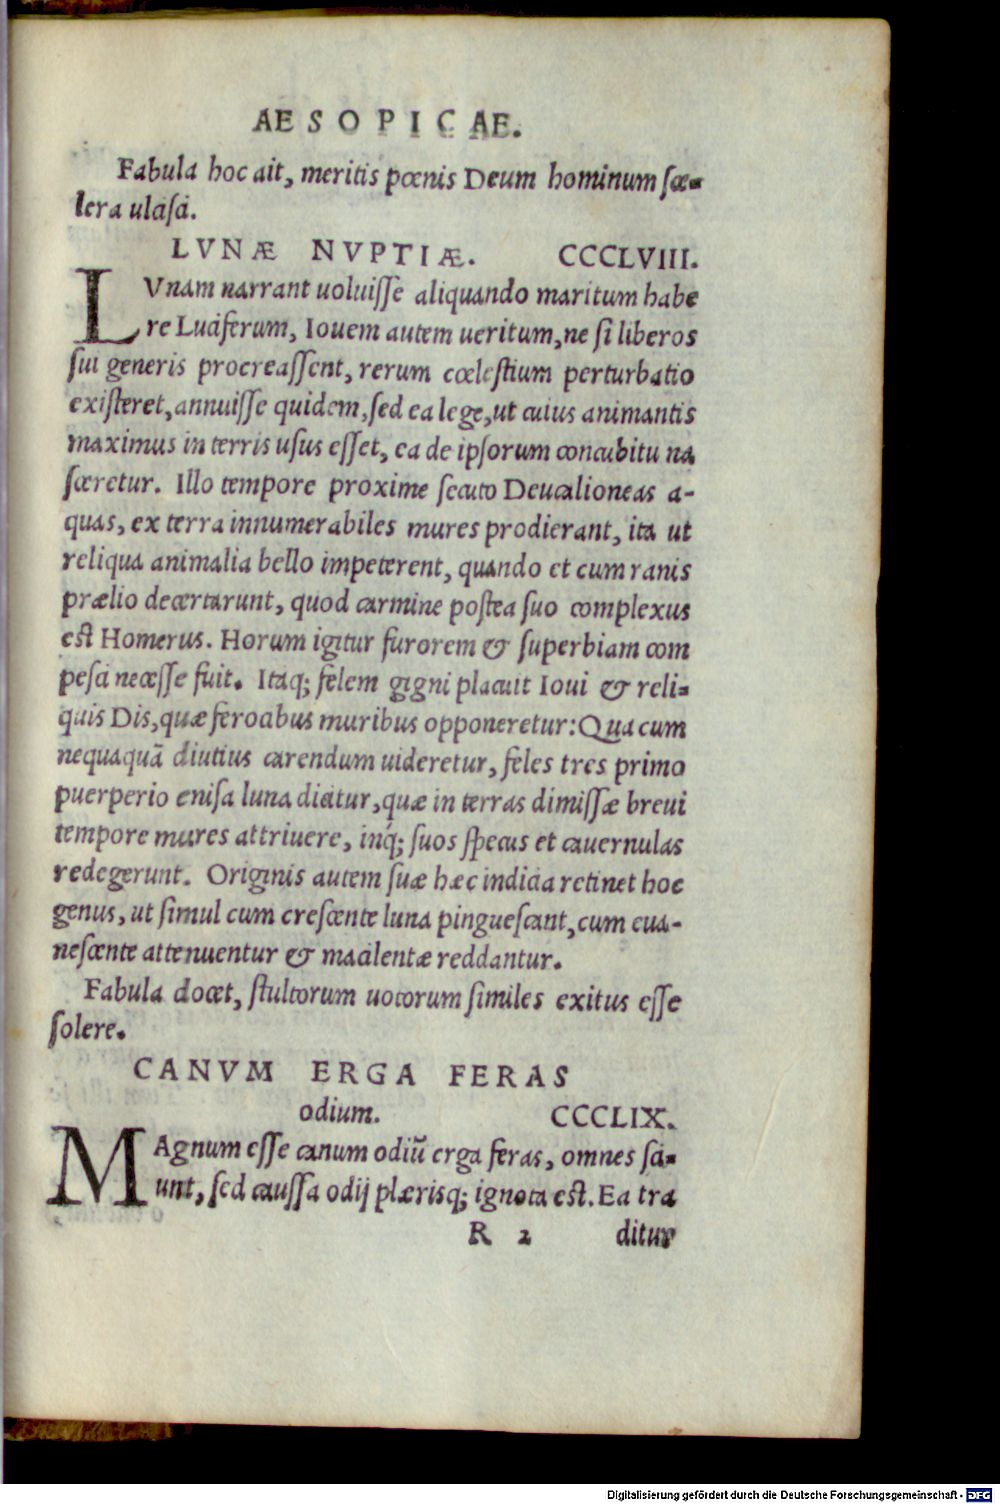 AESOPICAE.
Fabula hoc ait, meritis pœnis Deum hominum sce-
lera ulcisci.
LVNÆ NVPTIÆ. CCCLVIII.
LVnam narrant uoluisse aliquando maritum habe
re Luciferum, Iouem autem ueritum, ne si liberos
sui generis procreassent, rerum cœlestium perturbatio
existeret, annuisse quidem, sed ea lege, ut cuius animantis
maximus in terris usus esset, ea de ipsorum concubitu na
sceretur. Illo tempore proxime secuto Deucalioneas a-
quas, ex terra innumerabiles mures prodierant, ita ut
reliqua animalia bello impeterent, quando et cum ranis
prælio decertarunt, quod carmine postea suo complexus
est Homerus. Horum igitur furorem & superbiam com
pesci necesse fuit. Itaq; felem gigni placuit Ioui & reli-
quis Dis, quæ ferocibus muribus opponeretur: Qua cum
nequaquã diutius carendum uideretur, feles tres primo
puerperio enisa luna dicitur, quæ in terras dimissæ breui
tempore mures attriuere, inq́; suos specus et cauernulas
redegerunt. Originis autem suæ hæc indicia retinet hoc
genus, ut simul cum crescente luna pinguescant, cum eua-
nescente attenuentur & macilentæ reddantur.
Fabula docet, stultorum uotorum similes exitus esse
solere.
CANVM ERGA FERAS
odium. CCCLIX.
MAgnum esse canum odiũ erga feras, omnes sci-
unt, sed caussa odij plærisq; ignota est. Ea tra
R 2 ditur
Digitalisierung gefördert durch die Deutsche Forschungsgemeinschaft - DFG